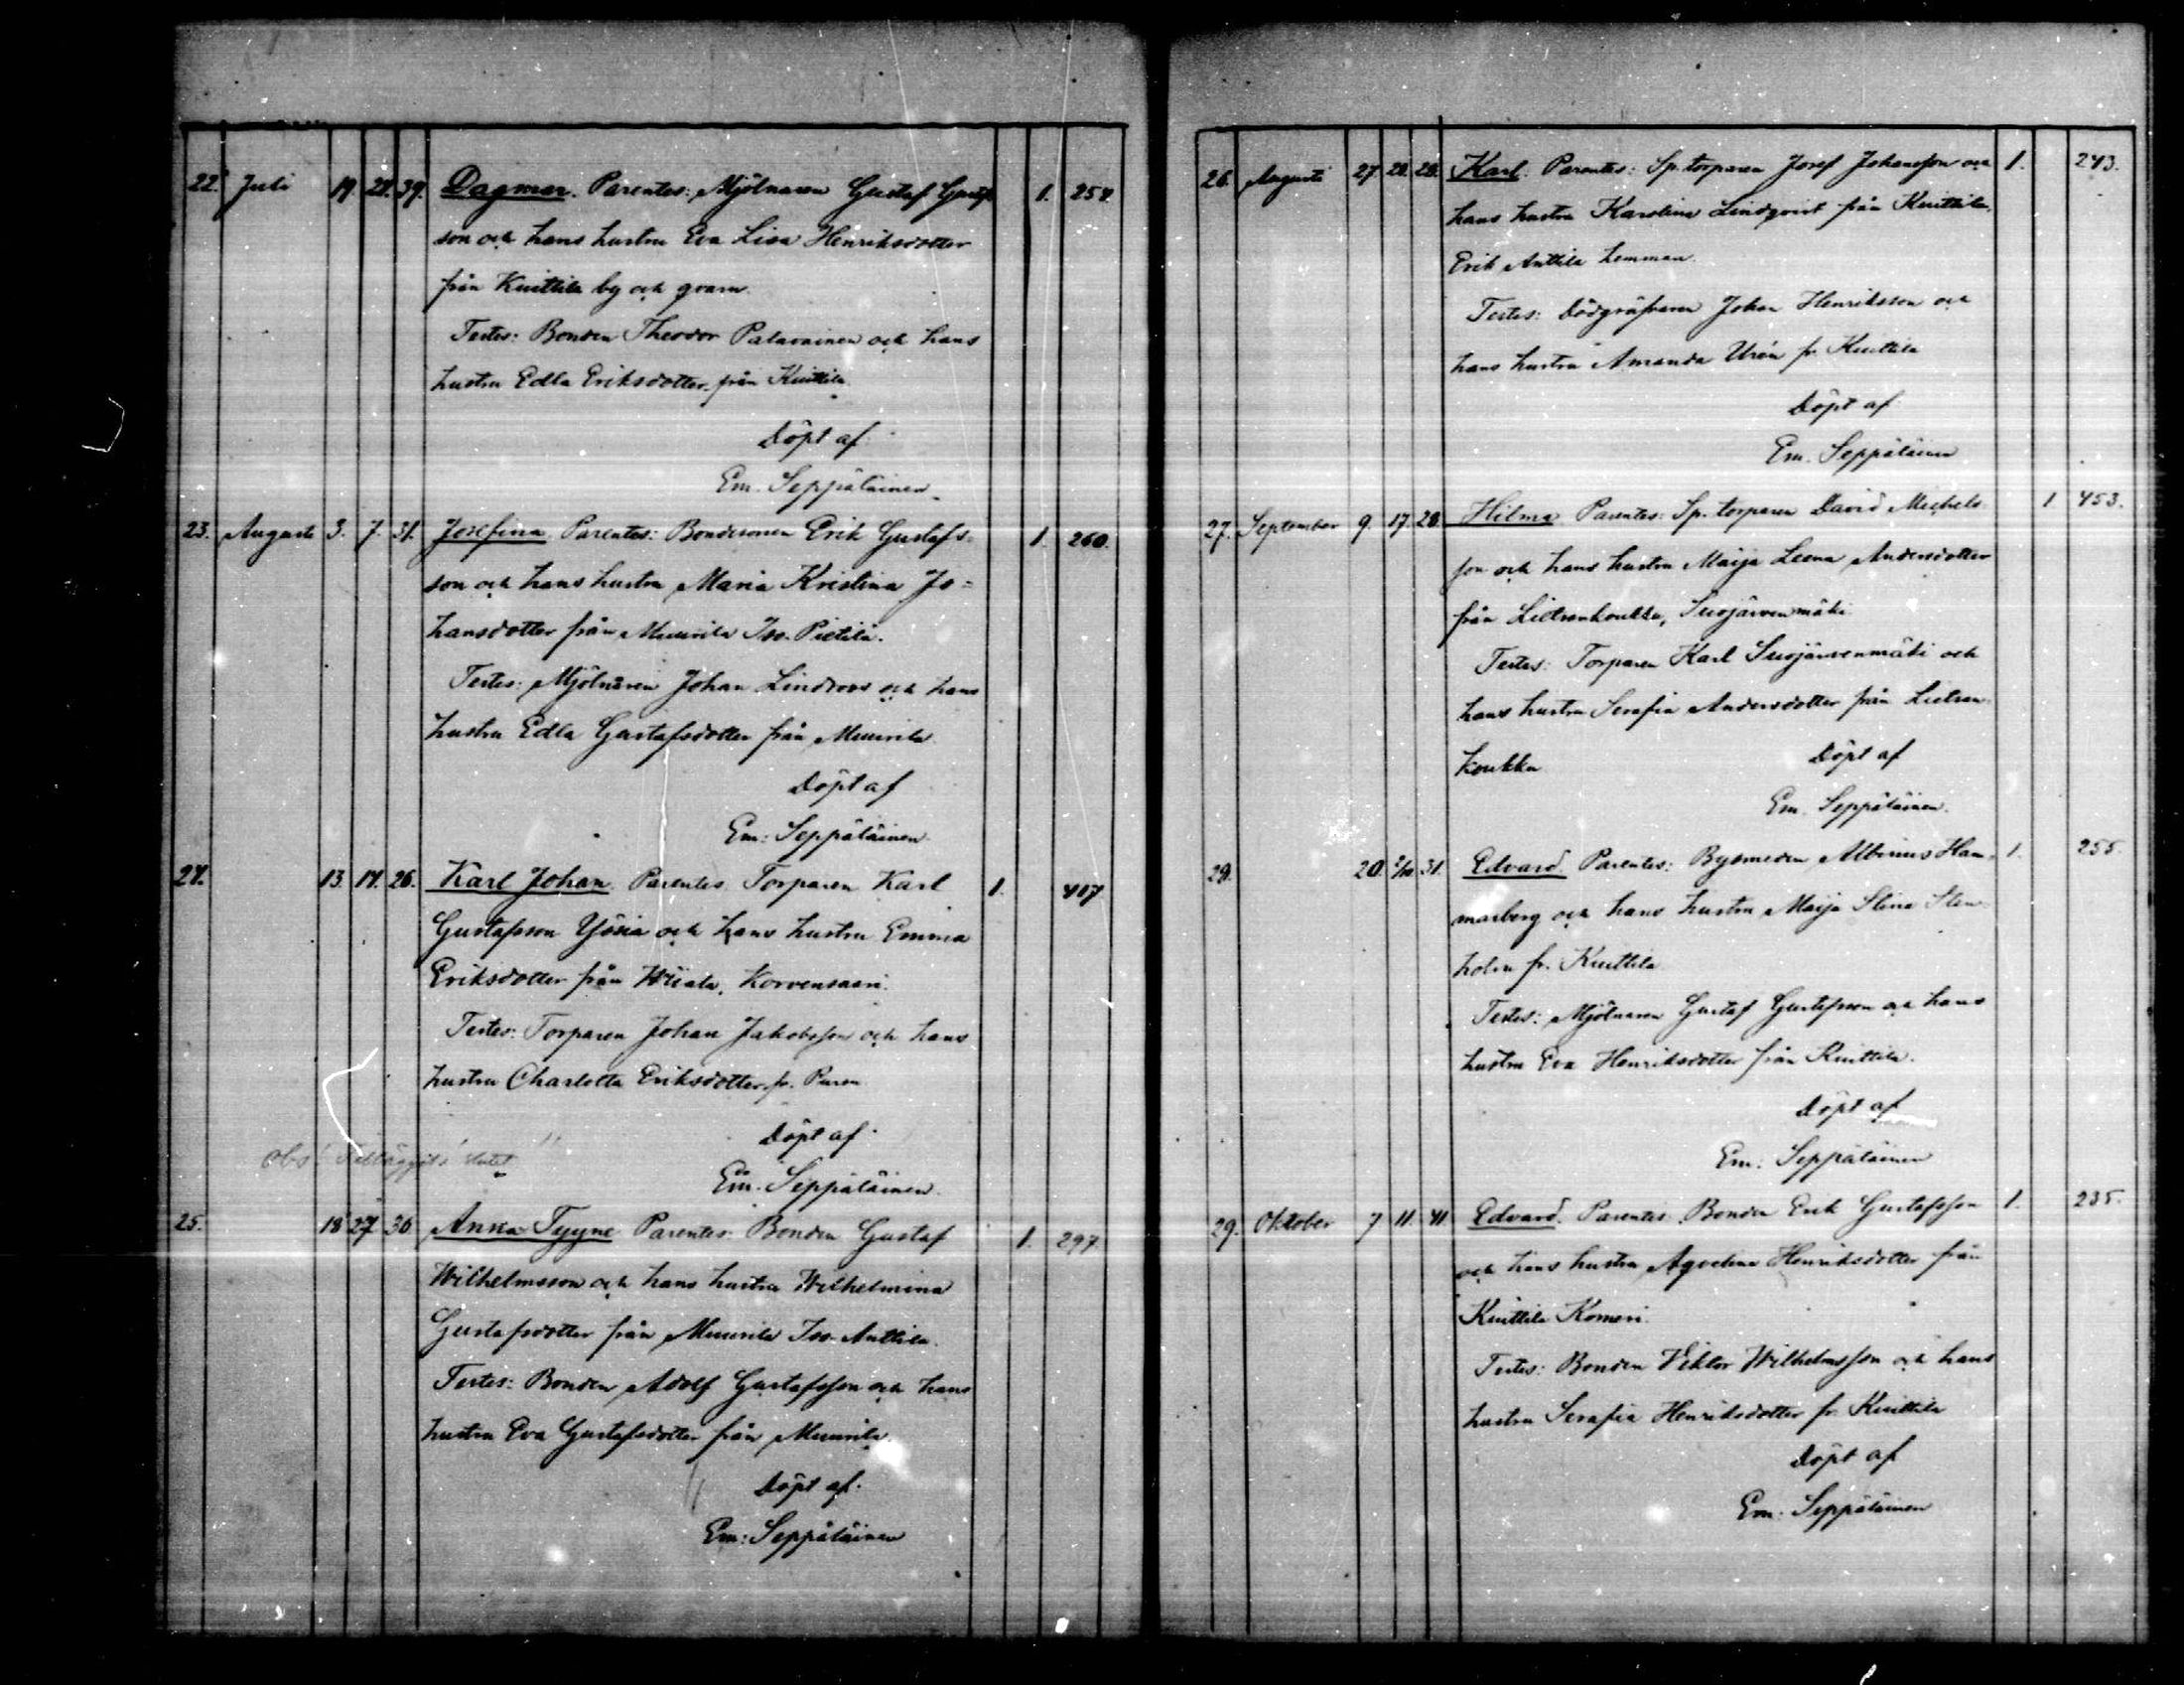 22. Juli 19. 21. 39. Dagmar. Parentes: Mjölnaren Gustaf Gustaf- 1. 254.
son och hans hustru Eva Lisa Henriksdotter
från Knuttila by och qvarn.
Testes: Bonden Theodor Palavainen och hans
hustru Edla Eriksdotter från Knuttila
Döpt af
Em. Seppäläinen.
23. Augusti 3. 7. 31. Josefina. Parentes: Bondesonen Erik Gustafs- 1. 260.
son och hans hustru Maria Kristina Jo=
hansdotter från Muurila Iso-Pietilä.
Testes: Mjölnaren Johan Lindroos och hans
hustru Edla Gustafsdotter från Muurila
Döpt af
Em: Seppäläinen
24. 13. 14. 26. Karl Johan. Parentes Torparen Karl 1. 417
Gustafsson Ylöinen och hans hustru Emma
Eriksdotter från Wiiala, Korvensaari.
Testes: Torparen Johan Jakobsson och hans
hustru Charlotta Eriksdotter fr. Puron
Döpt af
obs!
Em. Seppäläinen.
25. 18 27 36 Anna Tyyne Parentes: Bonden Gustaf 1. 297
Wilhelmsson och hans hustru Wilhelmina
Gustafsdotter från Muurila Iso-Anttila.
Testes: Bonden Adolf Gustafsson och hans
hustru Eva Gustafsdotter från Muurila.
Döpt af.
Em: Seppäläinen
26. Augusti 27 28. 28. Karl. Parentes: Sp. torparen Josef Johansson och 1. 243.
hans hustru Karolina Lindqvist från Knuttila,
Erik Anttila hemman.
Testes: Dödgräfvaren Johan Henriksson och
hans hustru Amanda Urén fr. Knuttila
Döpt af
Em. Seppäläinen
27. September 9. 17. 28. Hilma Parentes: Sp. torparen David Michels- 1 453.
son och hans hustru Maija Leena Andersdotter
från Lietsankoukku, Suojärvenmäki
Testes: Torparen Karl Suojärvenmäki och
hans hustru Serafia Andersdotter från Lietsan-
koukku Döpt af
Em. Seppäläinen.
28. 20. 2/10 31. Edvard Parentes: Bysmeden Albinus Ham- 1. 255.
marberg och hans hustru Maija Stina Sten-
holm fr. Knuttila
Testes: Mjölnaren Gustaf Gustafsson och hans
hustru Eva Henriksdotter från Knuttila.
Döpt af
Em: Seppäläinen
29. Oktober 7 11. 41 Edvard. Parentes Bonden Erik Gustafsson 1. 235.
och hans hustru Henriksdotter från
Knuttila Komeri.
Testes: Bonden Viktor Wilhelmsson och hans
hustru Serafia Henriksdotter fr. Knuttila
Döpt af
Em: Seppäläinen